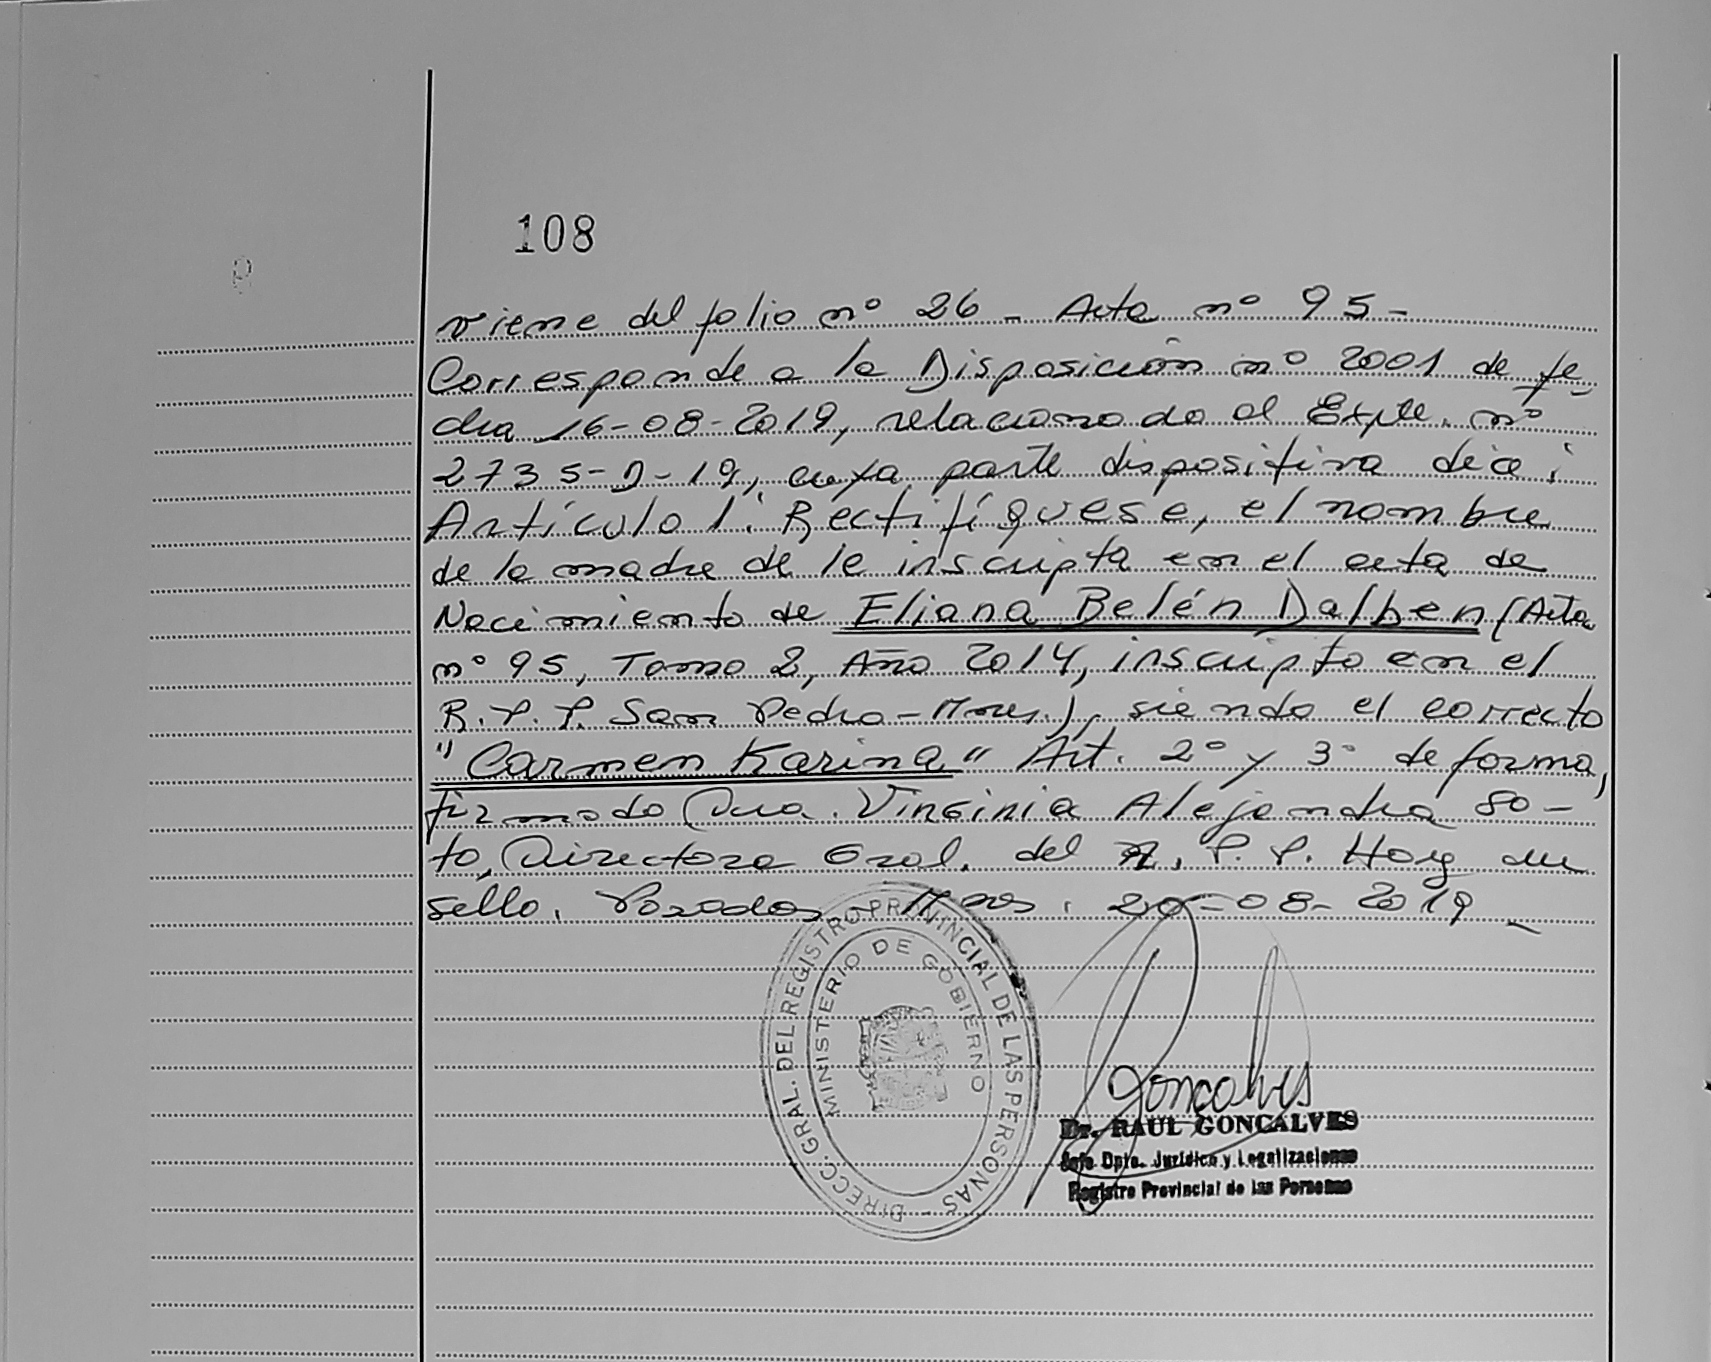 108
viene del folio nº 26 - Acta nº 95 -
Corresponde a la Disposición nº 2001 de fe-
cha 16-08-2019, relacionado al Expte. nº
2735-D-19, cuya parte dispositiva dice:
Artículo 1: Rectifíquese, el nombre
de la madre de la inscripta en el acta de
Nacimiento de Eliana Belén Dalben (Acta
nº 95, Tomo 2, Año 2014, inscripto en el
R.P.P. San Pedro - Mnes.), siendo el correcto
"Carmen Karina" Art. 2º y 3º de forma,
firmado Dra. Virginia Alejandra So-
to, Directora Gral. del R.P.P. Hay un
sello. Posadas - Mnes. 20-08-2019 -
DIRECC. GRAL. DEL REGISTRO PROVINCIAL DE LAS PERSONAS -
MINISTERIO DE GOBIERNO
Goncalves
Dr. RAUL GONCALVES
Jefe Dpto. Jurídico y Legalizaciones
Registro Provincial de las Personas